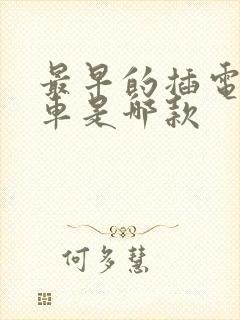 最早的插電
車是哪款
何多慧